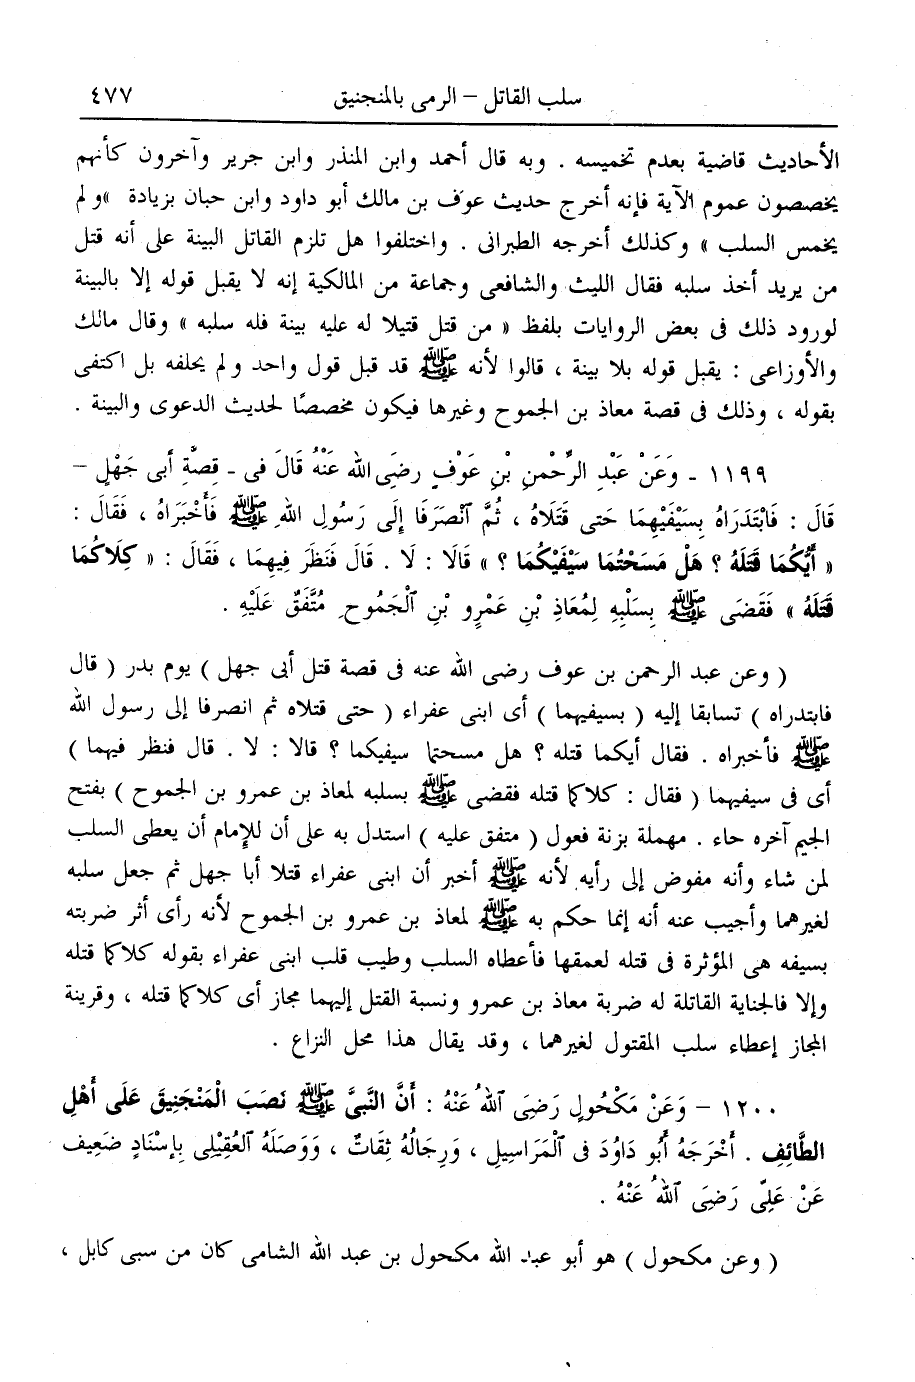 سلب القاتل – الرمى بالمنجنيق ٤٧٧
الأحاديث قاضية بعدم تخميسه . وبه قال أحمد وابن المنذر وابن جرير وآخرون كأنهم
يخصصون عموم الآية فإنه أخرج حديث عوف بن مالك أبو داود وابن حبان بزيادة « ولم
يخمس السلب » وكذلك أخرجه الطبرانى . واختلفوا هل تلزم القاتل البينة على أنه قتل
من يريد أخذ سلبه فقال الليث والشافعى وجماعة من المالكية إنه لا يقبل قوله إلا بالبينة
لورود ذلك فى بعض الروايات بلفظ « من قتل قتيلا له عليه بينة فله سلبه » وقال مالك
والأوزاعى : يقبل قوله بلا بينة ، قالوا لأنه ﷺ قد قبل قول واحد ولم يحلفه بل اكتفى
بقوله ، وذلك فى قصة معاذ بن الجموح وغيرها فيكون مخصصًا لحديث الدعوى والبينة .
١١٩٩ - وَعَنْ عَبْدِ الرَّحْمنِ بْنِ عَوْفٍ رضَى الله عَنْهُ قَالَ فى - قِصَّةِ أبى جَهْلٍ –
قَالَ : فَابْتَدَرَاهُ بِسَيْفَيْهِمَا حَتى قَتَلَاهُ ، ثُمَّ ٱنْصَرَفَا إِلَى رَسُولِ اللهِ ﷺ فَأَخْبَرَاهُ ، فَقَالَ :
« أَيُّكُمَا قَتَلَهُ ؟ هَلْ مَسَحْتُمَا سَيْفَيْكُمَا ؟ » قَالَا : لَا . قَالَ فَنَظَرَ فِيهِمَا ، فَقَالَ : « كِلَاكُمَا
قَتَلَهُ » فَقَضَى ﷺ بِسَلْبِهِ لِمُعَاذِ بْنِ عَمْرِو بْنِ ٱلْجَمُوحِ مُتَّفَقٌ عَلَيْهِ .
( وعن عبد الرحمن بن عوف رضى الله عنه فى قصة قتل أبى جهل ) يوم بدر ( قال
فابتدراه ) تسابقا إليه ( بسيفيهما ) أى ابنى عفراء ( حتى قتلاه ثم انصرفا إلى رسول الله
ﷺ فأخبراه . فقال أيكما قتله ؟ هل مسحتما سيفيكما ؟ قالا : لا . قال فنظر فيهما )
أى فى سيفيهما ( فقال : كلاكما قتله فقضى ﷺ بسلبه لمعاذ بن عمرو بن الجموح ) بفتح
الجيم آخره حاء . مهملة بزنة فعول ( متفق عليه ) استدل به على أن للإمام أن يعطى السلب
لمن شاء وأنه مفوض إلى رأيه لأنه ﷺ أخبر أن ابنى عفراء قتلا أبا جهل ثم جعل سلبه
لغيرهما وأجيب عنه أنه إنما حكم به ﷺ لمعاذ بن عمرو بن الجموح لأنه رأى أثر ضربته
بسيفه هى المؤثرة فى قتله لعمقها فأعطاه السلب وطيب قلب ابنى عفراء بقوله كلاكما قتله
وإلا فالجناية القاتلة له ضربة معاذ بن عمرو ونسبة القتل إليهما مجاز أى كلاكما قتله ، وقرينة
المجاز إعطاء سلب المقتول لغيرهما ، وقد يقال هذا محل النزاع .
١٢٠٠ – وَعَنْ مَكْحُولٍ رَضِىَ ٱللهُ عَنْهُ : أَنَّ النَّبىَّ ﷺ نَصَبَ الْمَنْجَنِيقَ عَلَى أَهْلِ
الطَّائِفِ . أَخْرَجَهُ أَبُو دَاوُدَ فى ٱلْمَرَاسِيلِ ، وَرِجَالُهُ ثِقَاتٌ ، وَوَصَلَهُ العُقَيْلِى بِإسْنَادٍ ضَعِيف
عَنْ عَلِىٍّ رَضِىَ ٱللهُ عَنْهُ .
( وعن مكحول ) هو أبو عبد الله مكحول بن عبد الله الشامى كان من سبى كابل ،